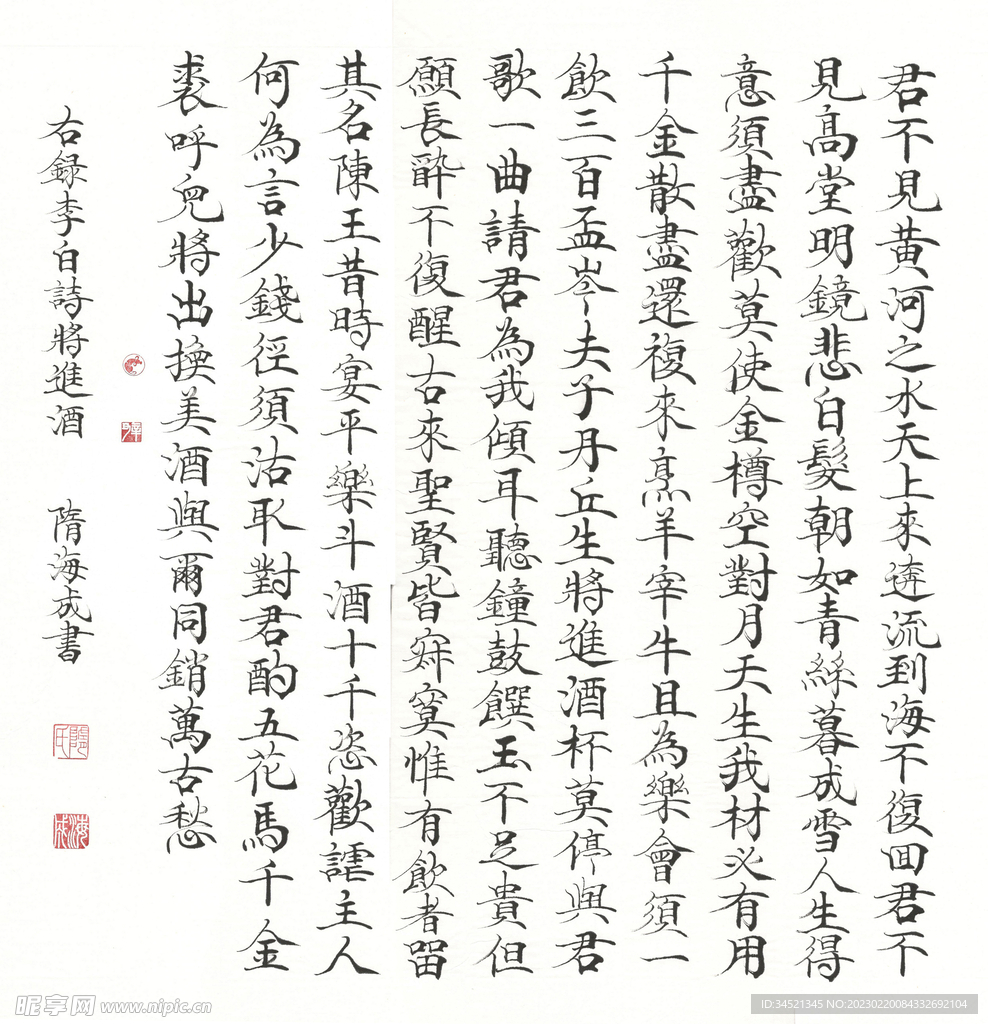 君不見黄河之水天上來逩流到海不復囬君不
見高堂明鏡悲白髮朝如青絲暮成雪人生得
意須盡歡莫使金樽空對月天生我材必有用
千金散盡還複來烹羊宰牛且為樂會須一
飲三百盃岑夫子丹丘生將進酒杯莫停與君
歌一曲請君為我傾耳聽鐘鼓饌玉不足貴但
願長醉不復醒古來聖賢皆寂寞惟有飲者留
其名陳王昔時宴平樂斗酒十千恣歡謔主人
何為言少錢徑須沽取對君酌五花馬千金
裘呼兒將出換美酒與爾同銷萬古愁
右録李白詩將進酒 隋海成書
隋氏
海成
昵享网 www.nipic.cn
ID:34521345 NO:20230220084332692104